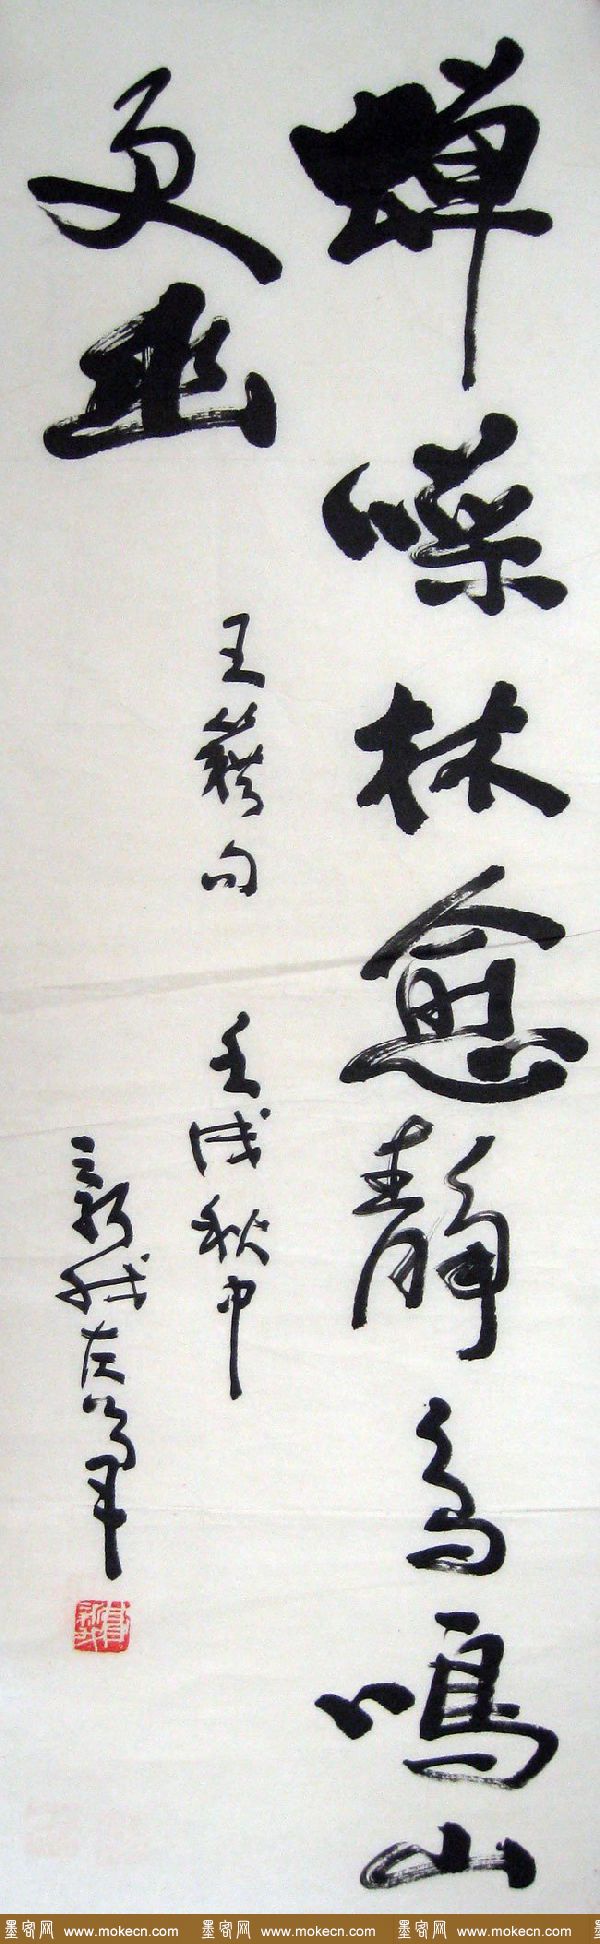 蝉噪林愈静鸟鸣山
更幽
王籍句
壬戌秋中
新我左笔
墨客网 www.mokecn.com 墨客网 www.mokecn.com 墨客网 www.mokecn.com